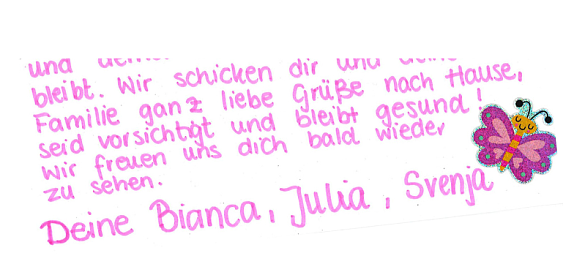 und
bleibt. Wir schicken dir und
Familie ganz liebe Grüße nach Hause,
seid vorsichtigt und bleibt gesund!
Wir freuen uns dich bald wieder
zu sehen.
Deine Bianca, Julia, Svenja